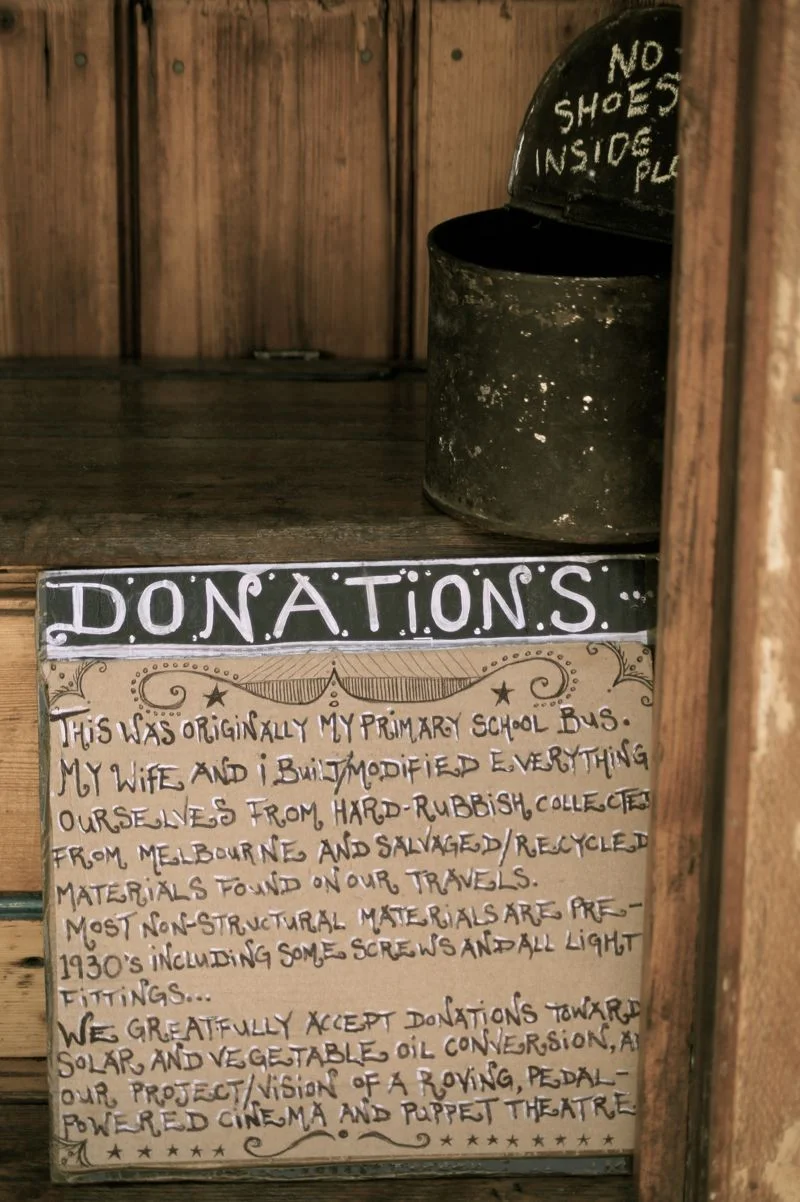 NO
SHOES
INSIDE
DONATiONS...
THiS WAS ORiGiNALLY MY PRiMARY SCHOOL BUS.
MY WiFE AND i BUiLT/MODiFiED EVERYTHiNG
OURSELVES FROM HARD-RUBBiSH COLLECTED
FROM MELBOURNE AND SALVAGED/RECYCLED
MATERiALS FOUND ON OUR TRAVELS.
MOST NON-STRUCTURAL MATERiALS ARE PRE-
1930'S iNCLUDiNG SOME SCREWS AND ALL LiGHT
FiTTiNGS...
WE GREATFULLY ACCEPT DONATiONS TOWARD
SOLAR AND VEGETABLE OiL CONVERSiON,
OUR PROJECT/ViSiON OF A ROViNG, PEDAL-
POWERED CiNEMA AND PUPPET THEATRE